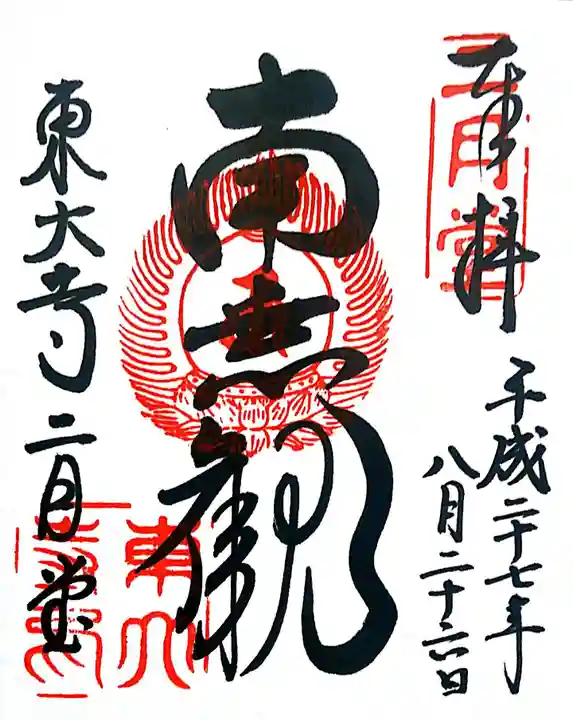 奉拝
二月堂
平成二十七年
八月二十六日
南無観
東大寺二月堂